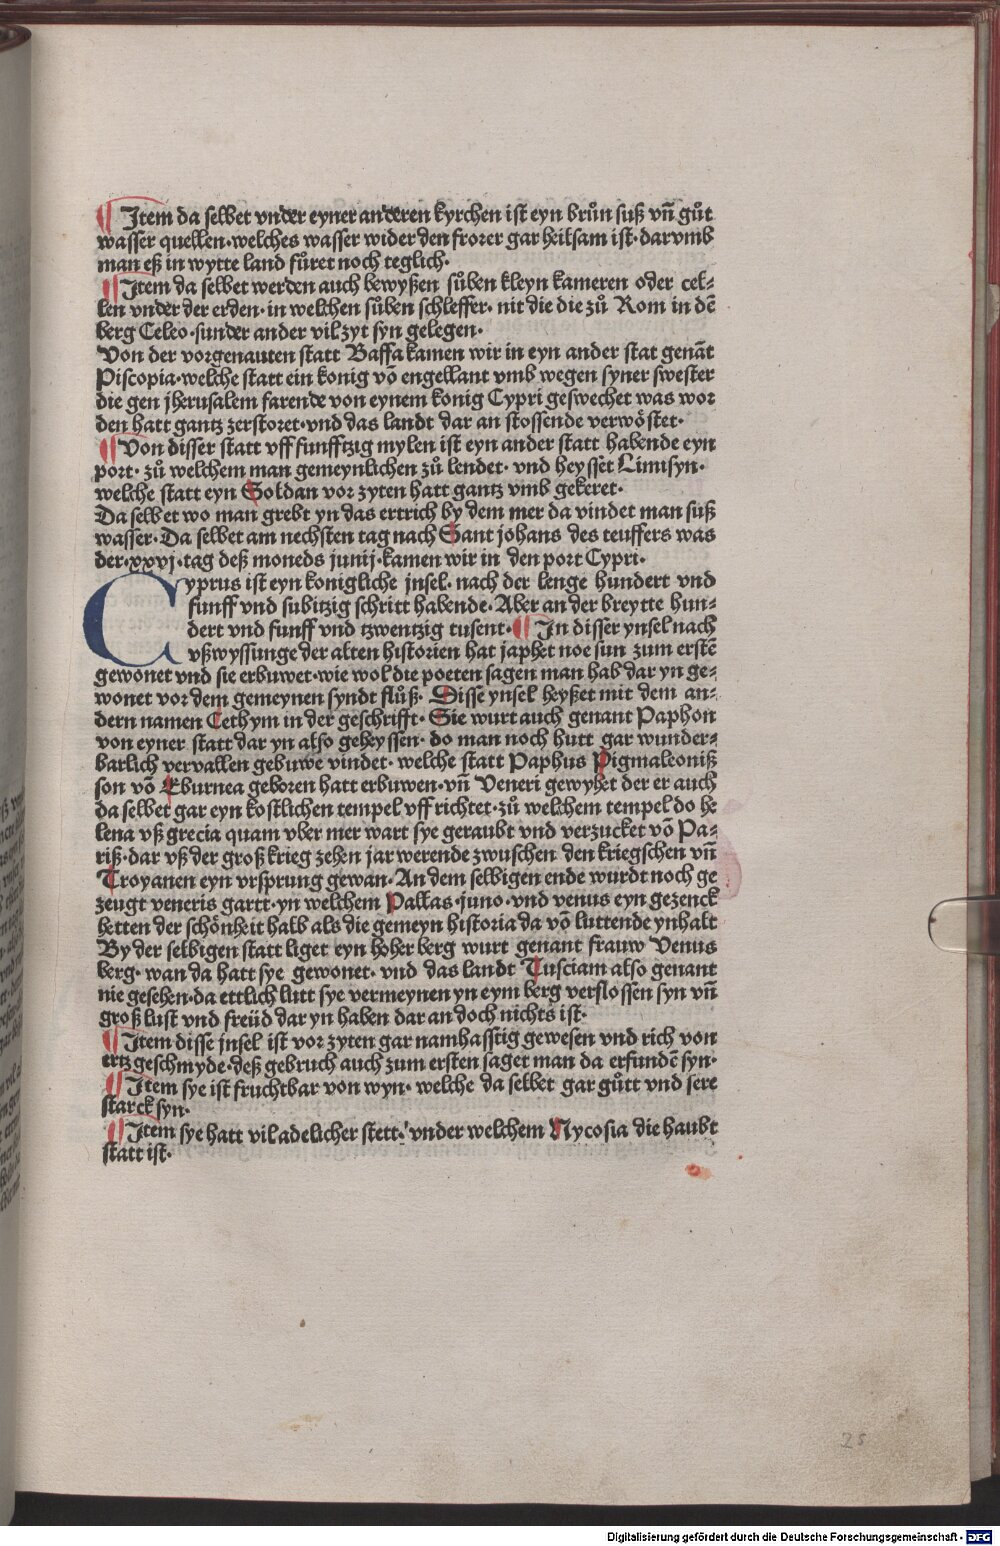 ¶ Item da selbet vnder eyner anderen kyrchen ist eyn brůn suß vñ gůt
wasser quellen·welches wasser wider den frorer gar heilsam ist·darvmb
man eß in wytte land fůret noch teglich·
¶ Item da selbet werden auch bewyßen sůben kleyn kameren oder cel⸗
len vnder der erden·in welchen sůben schleffer·nit die die zů Rom in dẽ
berg Celeo·sunder ander vil zyt syn gelegen·
Von der vorgenauten statt Baffa kamen wir in eyn ander stat genãt
Piscopia·welche statt ein konig võ engellant vmb wegen syner swester
die gen jherusalem farende von eynem konig Cypri geswechet was wor
den hatt gantz zerstoret·vnd das landt dar an stossende verwöstet·
¶ Von disser statt vff funfftzig mylen ist eyn ander statt habende eyn
port·zů welchem man gemeynlichen zů lendet·vnd heysset Limisyn·
welche statt eyn Soldan vor zyten hatt gantz vmb gekeret·
Da selbet wo man grebt yn das ertrich by dem mer da vindet man suß
wasser·Da selbet am nechsten tag nach Sant johans des teuffers was
der·xxvj·tag deß moneds junij·kamen wir in den port Cypri·
Cyprus ist eyn konigliche jnsel·nach der lenge hundert vnd
funff vnd subitzig schritt habende·Aber an der breytte hun⸗
dert vnd funff vnd tzwentzig tusent·¶ In disser ynsel nach
vßwyssunge der alten historien hat japhet noe sun zum erstẽ
gewonet vnd sie erbuwet·wie wol die poeten sagen man hab dar yn ge⸗
wonet vor dem gemeynen syndt flůß·Disse ynsel heyßet mit dem an⸗
dern namen Cethym in der geschrifft·Sie wurt auch genant Paphon
von eyner statt dar yn also geheyssen·do man noch hutt gar wunder⸗
barlich vervallen gebuwe vindet·welche statt Paphus Pigmaleoniß
son võ Eburnea geboren hatt erbuwen·vñ Veneri gewyhet der er auch
da selbet gar eyn kostlichen tempel vff richtet·zů welchem tempel do he
lena vß grecia quam vber mer wart sye geraubt vnd verzucket võ Pa⸗
riß·dar vß der groß krieg zehen jar werende zwuschen den kriegschen vñ
Troyanen eyn vrsprung gewan·An dem selbigen ende wurdt noch ge
zeugt veneris gartt·yn welchem Pallas·juno·vnd venus eyn gezenck
hetten der schönheit halb als die gemeyn historia da võ luttende ynhalt
By der selbigen statt liget eyn hoher berg wurt genant frauw Venus
berg·wan da hatt sye gewonet·vnd das landt Tusciam also genant
nie gesehen·da ettlich lutt sye vermeynen yn eym berg verslossen syn vñ
groß lust vnd freüd dar yn haben dar an doch nichts ist·
¶ Item disse jnsel ist vor zyten gar namhasstig gewesen vnd rich von
ertz geschmyde·deß gebruch auch zum ersten saget man da erfundẽ syn·
¶ Item sye ist fruchtbar von wyn·welche da selbet gar gůtt vnd sere
starck syn·
¶ Item sye hatt vil adelicher stett:vnder welchem Nycosia die haubt
statt ist·
25
Digitalisierung gefördert durch die Deutsche Forschungsgemeinschaft · DFG